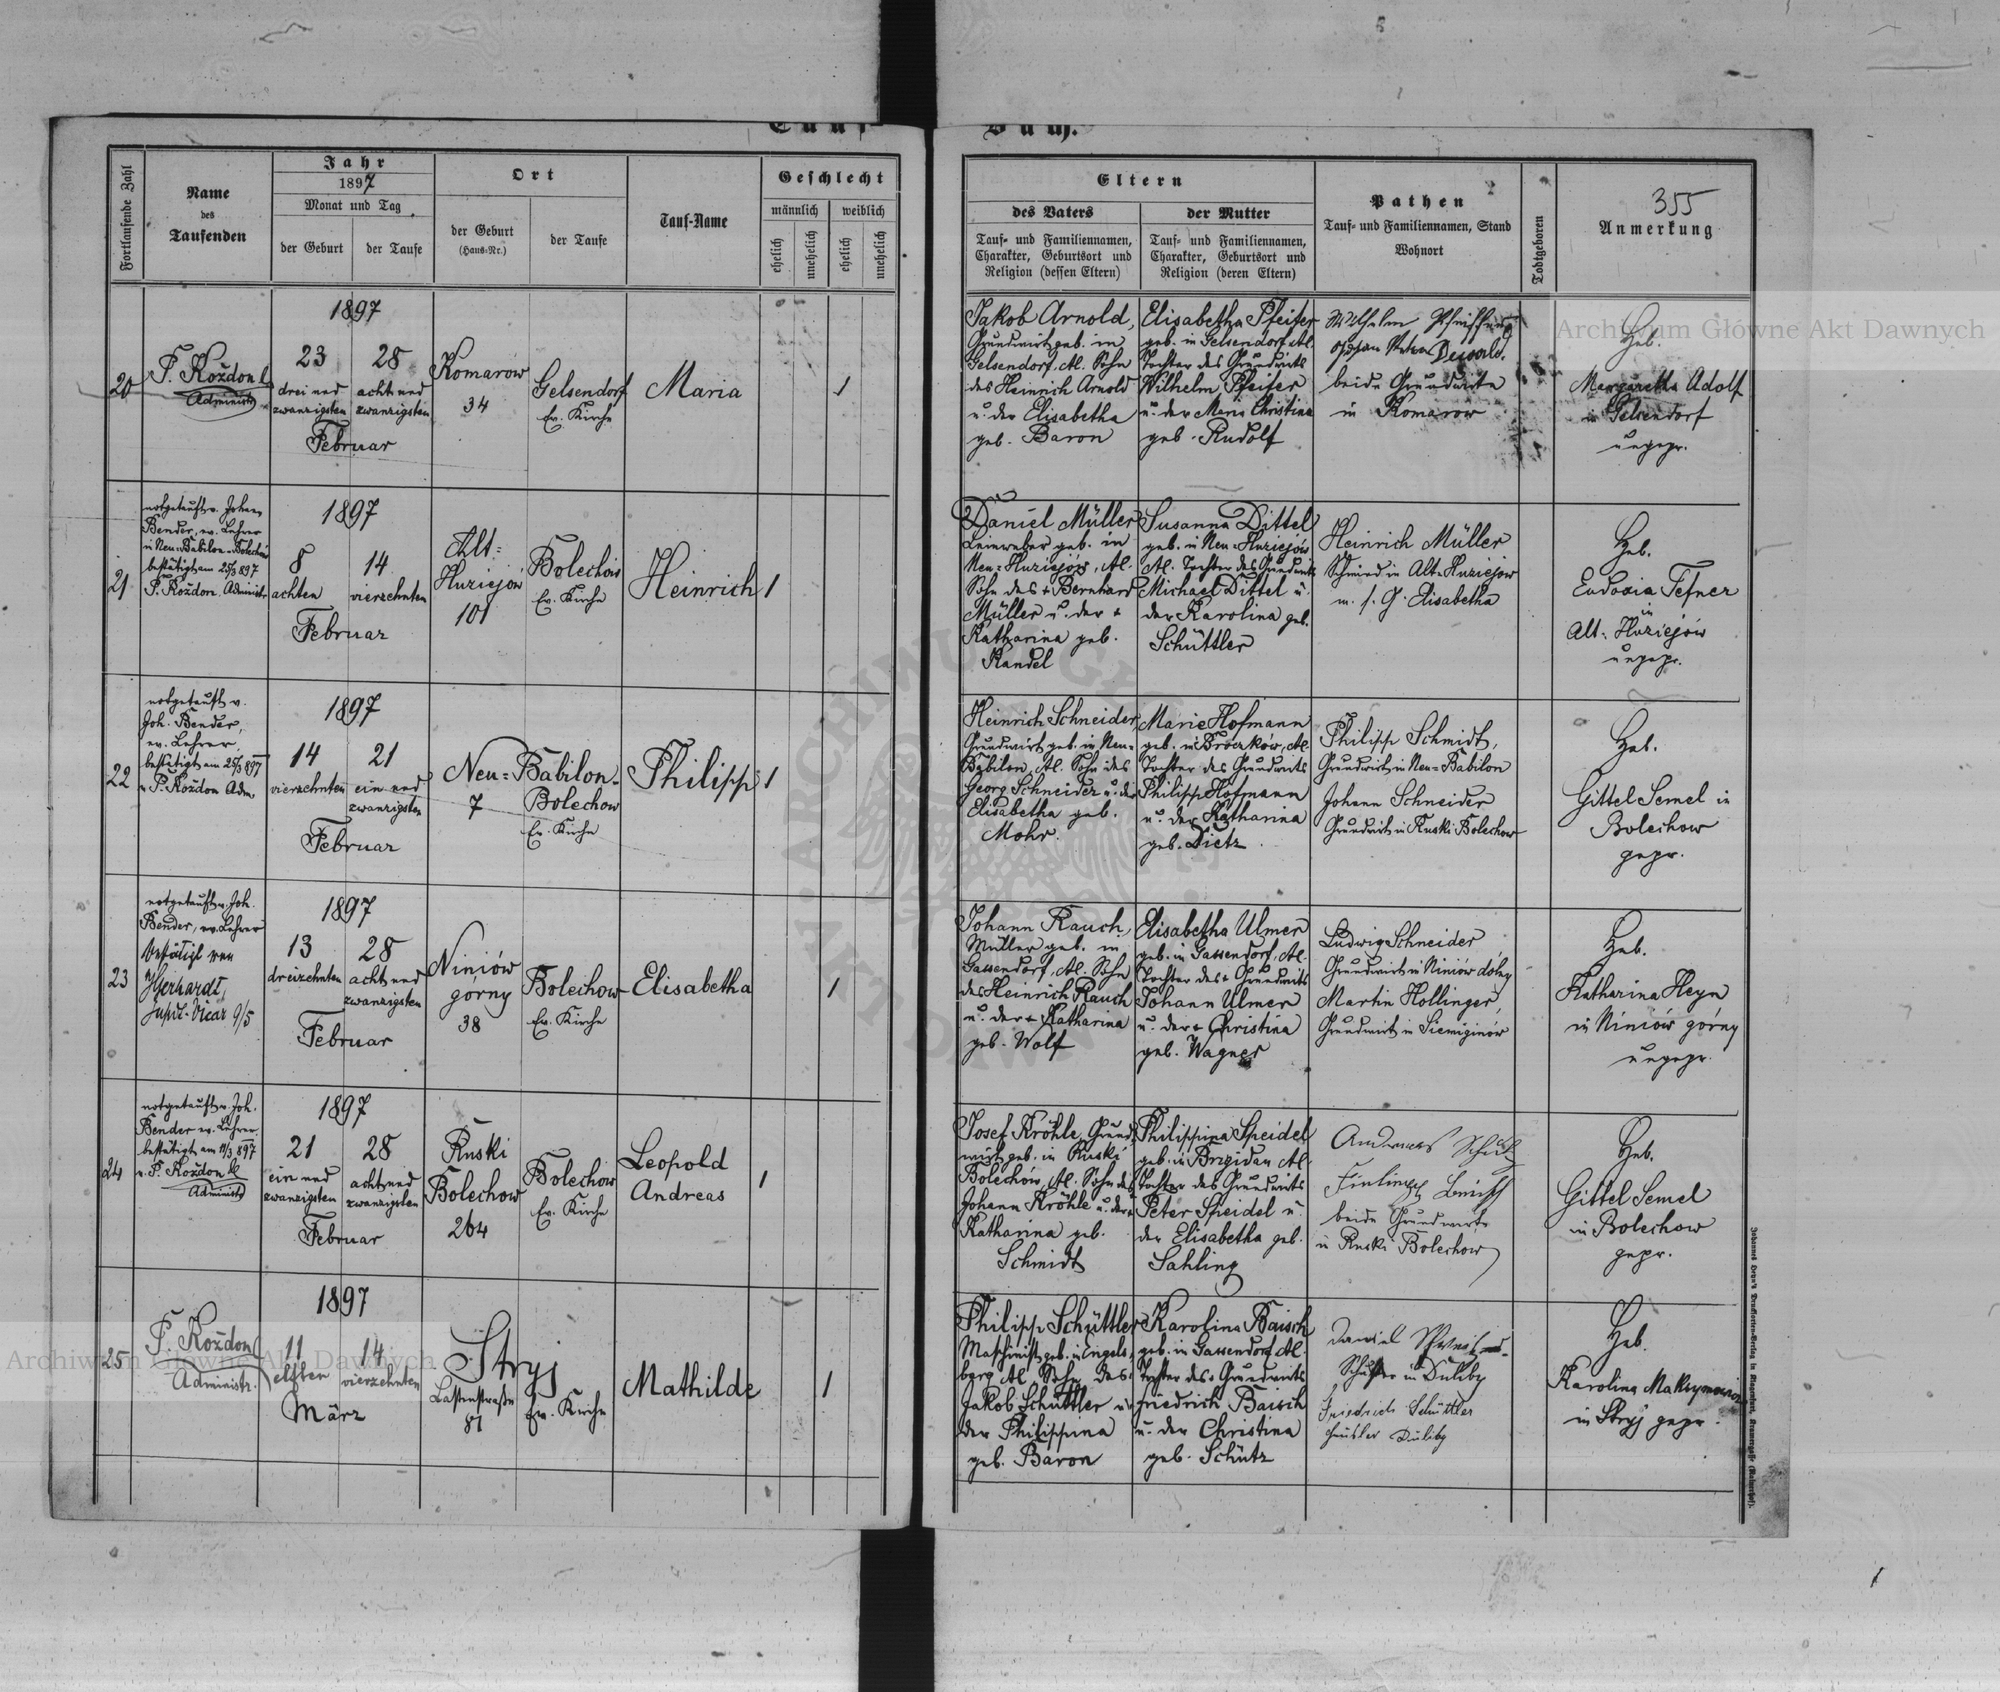 Tauf-
Buch.
Fortlaufende Zahl
Name
des
Taufenden
Jahr
1897
Monat und Tag
der Geburt
der Taufe
Ort
der Geburt
(Haus-Nr.)
der Taufe
Tauf-Name
Geschlecht
männlich
weiblich
ehelich
unehelich
ehelich
unehelich
Eltern
des Vaters
Tauf- und Familiennamen,
Charakter, Geburtsort und
Religion (dessen Eltern)
der Mutter
Tauf- und Familiennamen,
Charakter, Geburtsort und
Religion (deren Eltern)
Pathen
Tauf- und Familiennamen, Stand
Wohnort
Todtgeboren
355
Anmerkung
20
P. Koždon
Administr.
1897
23
drei und
zwanzigsten
28
acht und
zwanzigsten
Februar
Komarow
34
Gelsendorf
Ev. Kirche
Maria
1
Jakob Arnold,
Grundwirt geb. in
Gelsendorf, Al. Sohn
des Heinrich Arnold
u. der Elisabetha
geb. Baron
Elisabetha Pfeifer
geb. in Gelsendorf, Al.
Tochter des Grundwirts
Wilhelm Pfeifer
u. der Maria Christina
geb. Rudolf
Wilhelm
beide Grundwirte
in Komarow
Heb.
Margaretha Adolf
in Gelsendorf
ungepr.
21
notgetauft v. Johann
Bender, ev. Lehrer
in Neu-Babilon-Bolechow
bestätigt am 25/3 897
P. Koždon, Administr.
1897
8
achten
14
vierzehnten
Februar
Alt-
Huziejow
101
Bolechow
Ev. Kirche
Heinrich
1
Daniel Müller
Leinweber geb. in
Neu-Huziejow, Al.
Sohn des + Bernhard
Müller u. der +
Katharina geb.
Kandel
Susanna Dittel
geb. in Neu-Huziejow
Al. Tochter des Grundwirts
Michael Dittel u.
der Karolina geb.
Schüttler
Heinrich Müller
Schmied in Alt-Huziejow
m. s. G. Elisabetha
Heb.
Eudoxia Fefner
in
Alt-Huziejow
ungepr.
22
notgetauft v.
Joh. Bender,
ev. Lehrer,
bestätigt am 25/3 897
v. P. Koždon Adm.
1897
14
vierzehnten
21
ein und
zwanzigsten
Februar
Neu-Babilon-
7
Bolechow
Ev. Kirche
Philipp
1
Heinrich Schneider,
Grundwirt geb. in Neu-
Babilon, Al. Sohn des
Georg Schneider u. der
Elisabetha geb.
Mohr.
Marie Hofmann
geb. in Broczków, Al.
Tochter des Grundwirts
Philipp Hofmann
u. der Katharina
geb. Dietz.
Philipp Schmidt,
Grundwirt in Neu-Babilon
Johann Schneider
Grundwirt in Ruski Bolechow
Heb.
Gittel Semel in
Bolechow
gepr.
23
notgetauft v. Joh.
Bender, ev. Lehrer
bestätigt von
JGerhardt,
Supdt. Vicar 9/5
1897
13
dreizehnten
28
acht und
zwanzigsten
Februar
Niniów
górny
38
Bolechow
Ev. Kirche
Elisabetha
1
Johann Rauch,
Müller geb. in
Gassendorf, Al. Sohn
des Heinrich Rauch
u. der + Katharina
geb. Wolf
Elisabetha Ulmer
geb. in Gassendorf, Al.
Tochter des + Grundwirts
Johann Ulmer
u. der + Christina
geb. Wagner
Ludwig Schneider
Grundwirt in Niniów dólny
Martin Hollinger,
Grundwirt in Siemiginów
Heb.
Katharina Heyn
in Niniów górny
ungepr.
24
notgetauft v. Joh.
Bender ev. Lehrer
bestätigt am 11/3 897
v. P. Koždon
Administr.
1897
21
ein und
zwanzigsten
28
acht und
zwanzigsten
Februar
Ruski
Bolechow
264
Bolechow
Ev. Kirche
Leopold
Andreas
1
Josef Kröhle, Grund-
wirt geb. in Ruski
Bolechow, Al. Sohn des
Johann Kröhle u. der +
Katharina geb.
Schmidt
Philippina Speidel
geb. in Brigidau Al.
Tochter des Grundwirts
Peter Speidel u.
der Elisabetha geb.
Sahling
Andreas
beide Grundwirte
in Ruski Bolechow
Heb.
Gittel Semel
in Bolechow
gepr.
25
P. Koždon
Administr.
1897
11
elften
14
vierzehnten
März
Stryj
Lastenstraße
81
Ev. Kirche
Mathilde
1
Philipp Schüttler
Maschinist geb. in Engels-
berg Al. Sohn des
Jakob Schüttler u.
der Philippina
geb. Baron
Karolina Baisch
geb. in Gassendorf, Al.
Tochter des + Grundwirts
Friedrich Baisch
u. der Christina
geb. Schütz
Daniel
Schuster in Duliby
Friedrich Schüttler
Duliby
Heb.
Karolina Maksymowicz
in Stryj gepr.
Archiwum Główne Akt Dawnych
Archiwum Główne Akt Dawnych